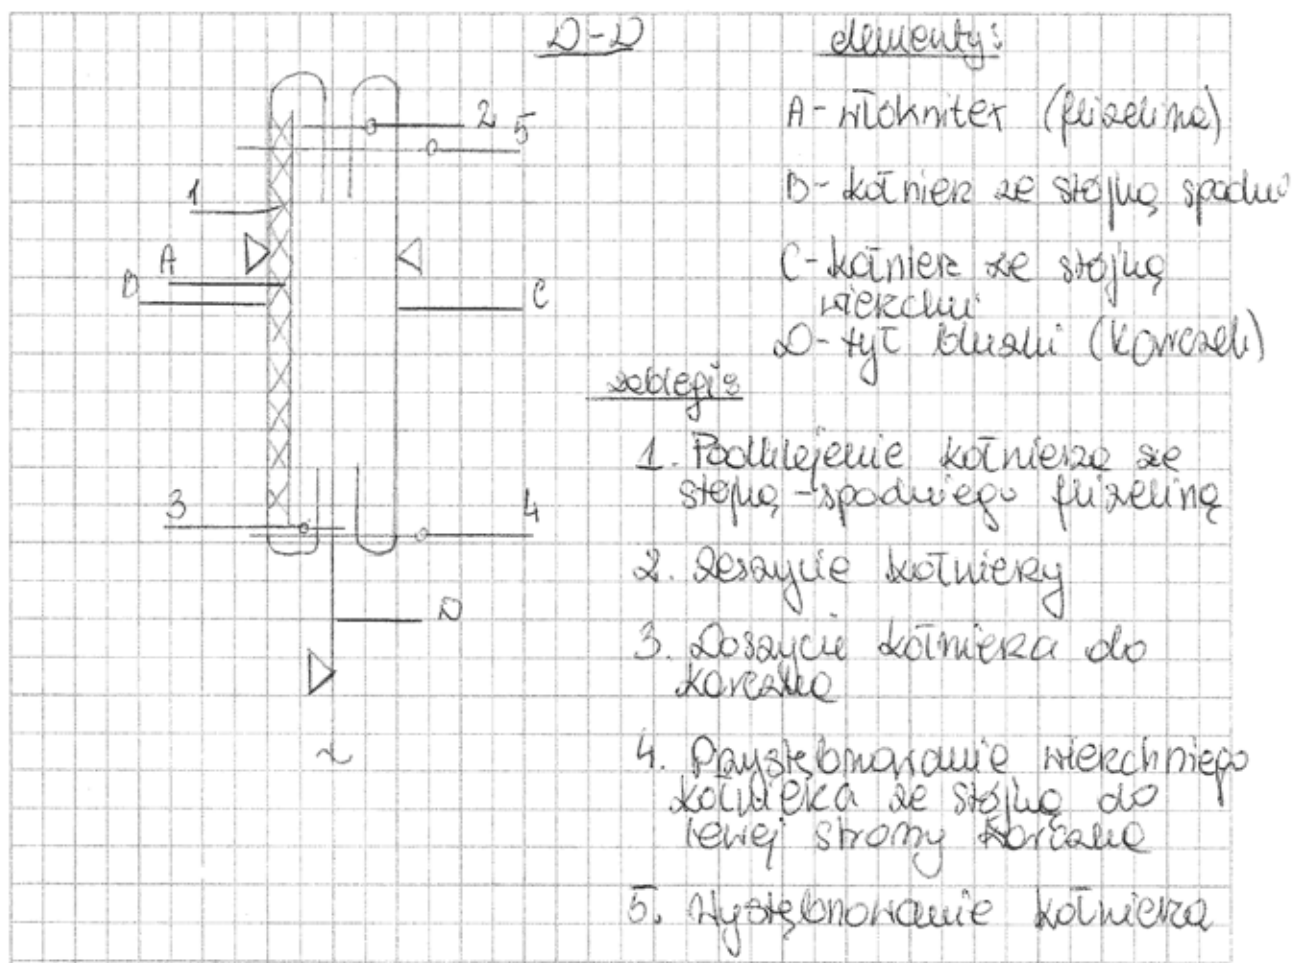 D-D
elementy:
2
5
A - włókniter (flizelina)
1
B - kołnierz ze stójką spodni
A
B
C
C - kołnierz ze stójką
wierzchni
D - tył bluzki (karczek)
zabiegi:
1. Podklejenie kołnierza ze
stójką - spodniego flizeliną
3
4
2. Zeszycie kołnierzy
D
3. Doszycie kołnierza do
karczka
4. Przystębnowanie wierzchniego
kołnierza ze stójką do
lewej strony karczka
5. Wystębnowanie kołnierza